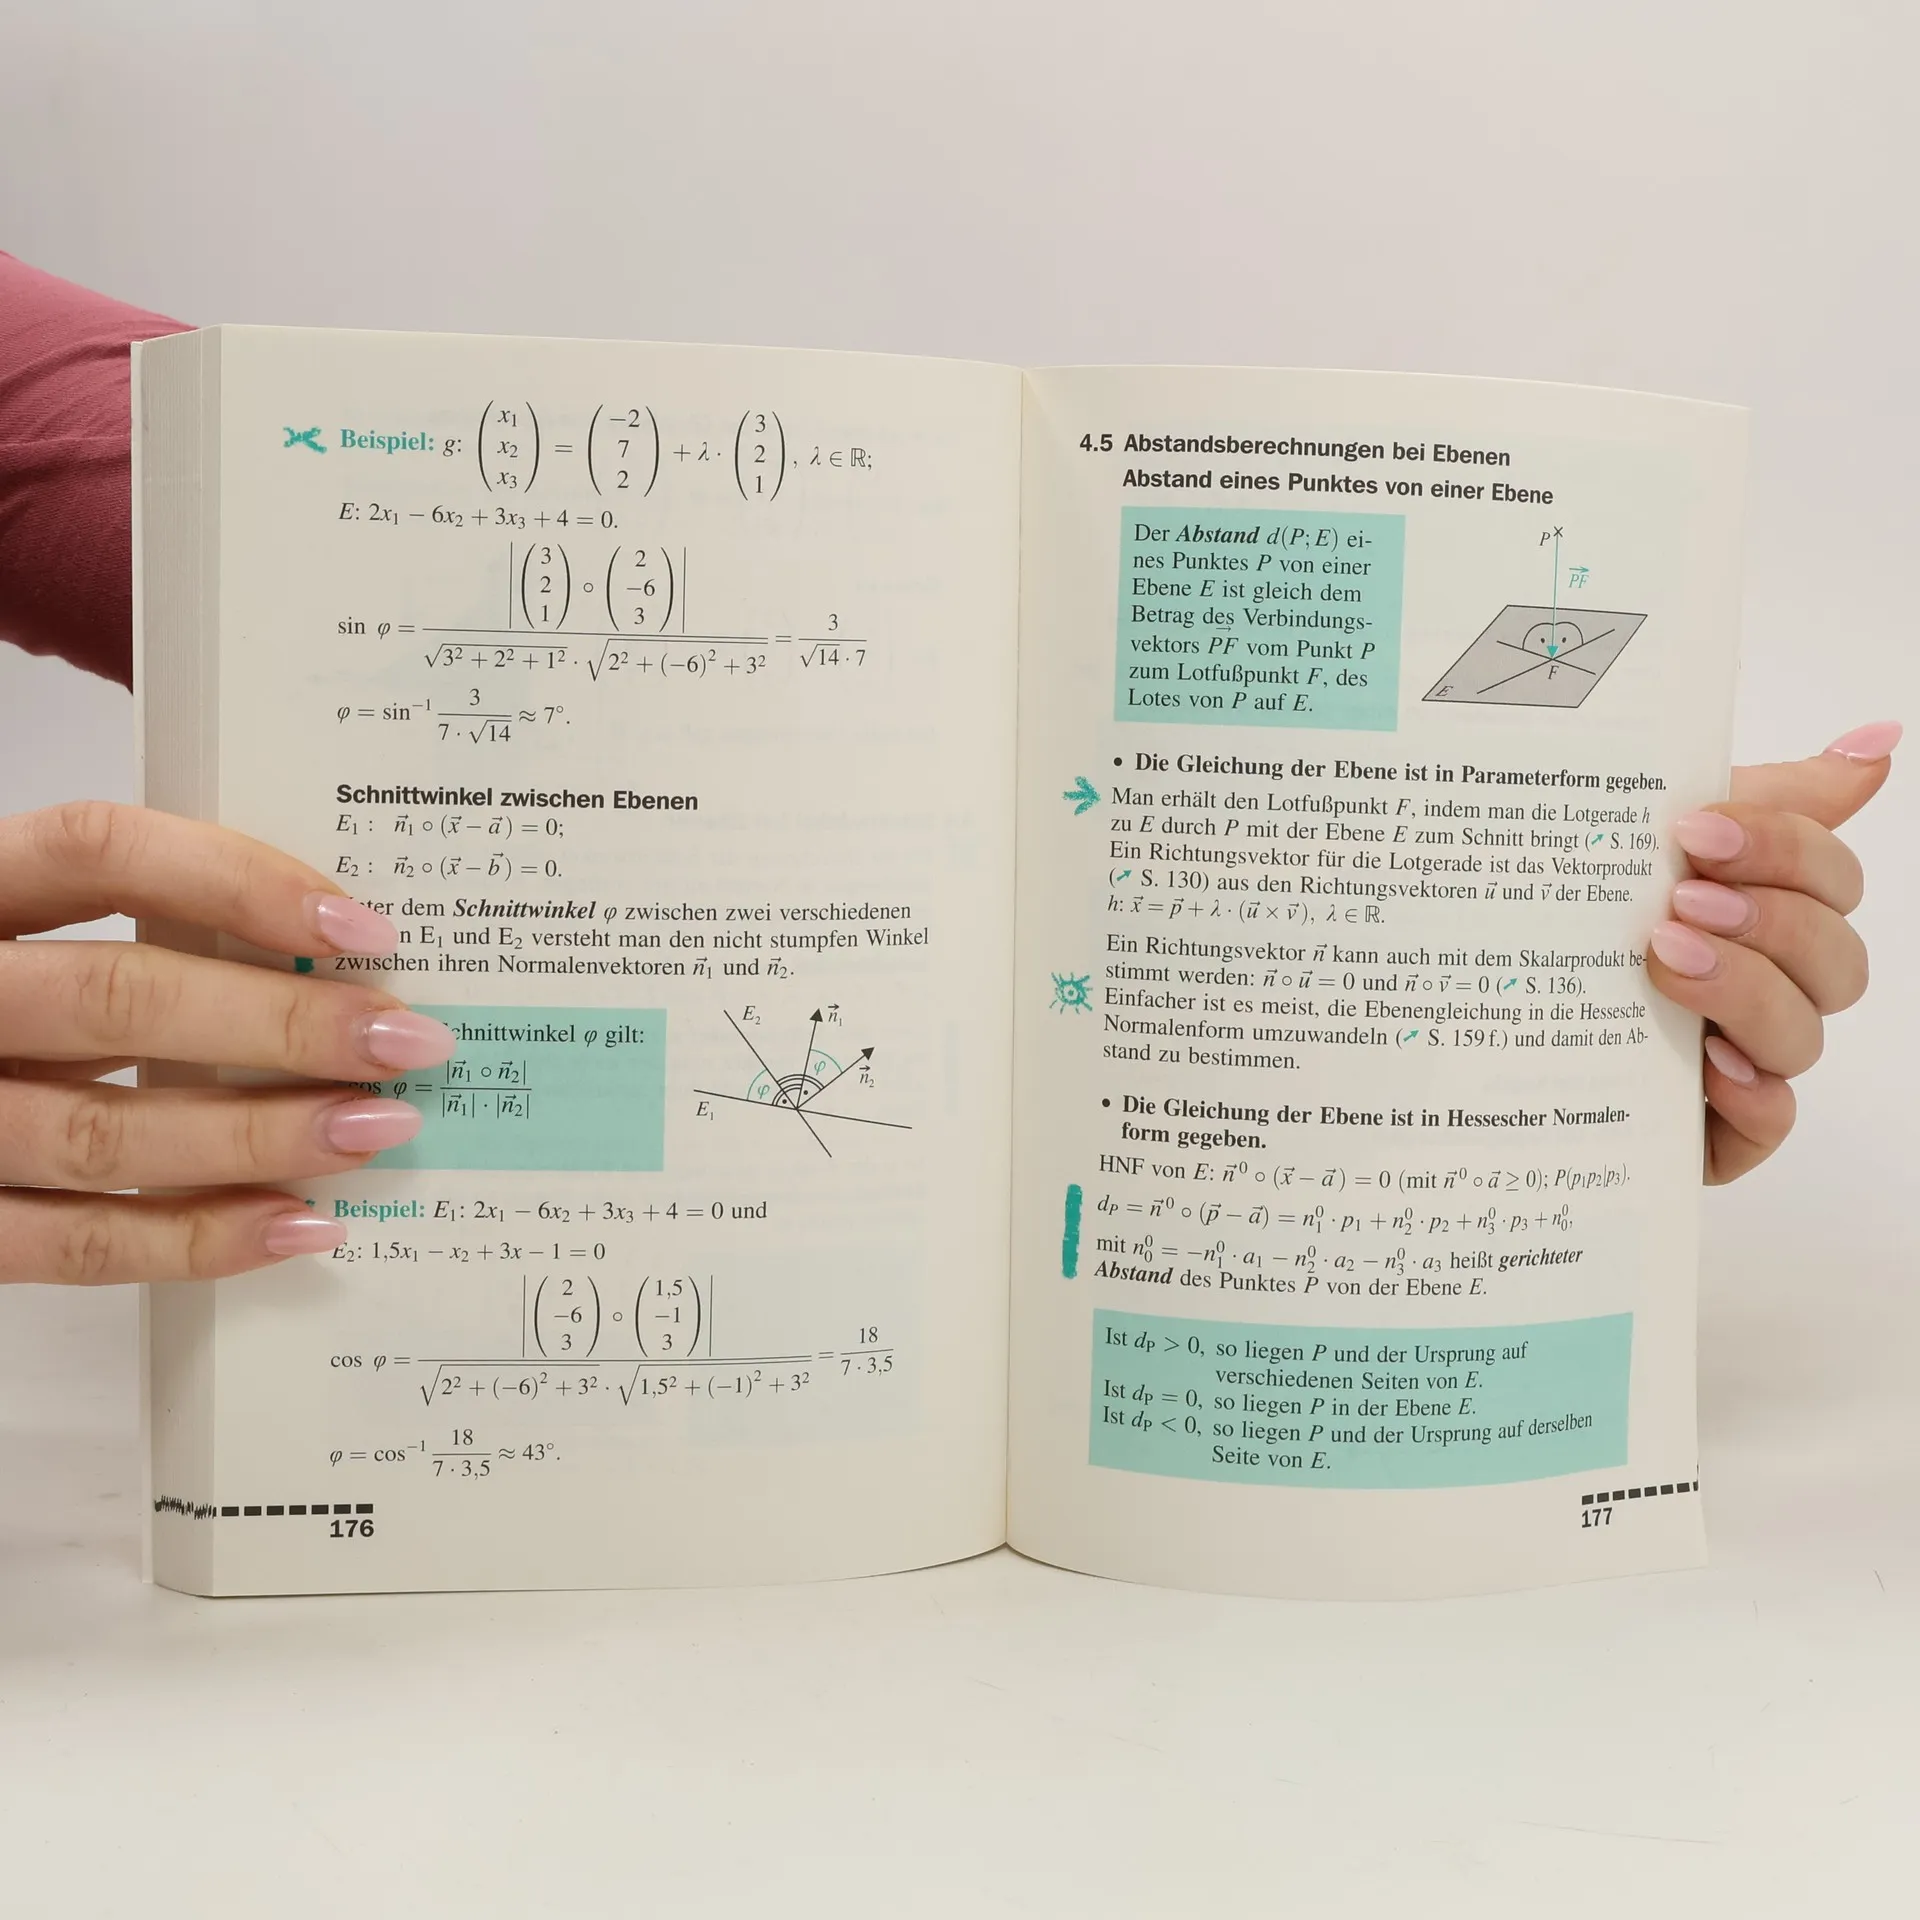 Beispiel: g: (x₁ x₂ x₃) = (−2 7 2) + λ · (3 2 1), λ ∈ ℝ;
E: 2x₁ − 6x₂ + 3x₃ + 4 = 0.
sin φ = |(3 2 1) ∘ (2 −6 3)| / (√3² + 2² + 1² · √2² + (−6)² + 3²) = 3 / (√14 · 7)
φ = sin⁻¹ 3 / (7 · √14) ≈ 7°.
Schnittwinkel zwischen Ebenen
E₁ : n⃗₁ ∘ (x⃗ − a⃗) = 0;
E₂ : n⃗₂ ∘ (x⃗ − b⃗) = 0.
dem Schnittwinkel φ zwischen zwei verschiedenen
E₁ und E₂ versteht man den nicht stumpfen Winkel
zwischen ihren Normalenvektoren n⃗₁ und n⃗₂.
chnittwinkel φ gilt:
cos φ = |n⃗₁ ∘ n⃗₂| / (|n⃗₁| · |n⃗₂|)
E₂ n⃗₁
φ φ n⃗₂
E₁
Beispiel: E₁: 2x₁ − 6x₂ + 3x₃ + 4 = 0 und
E₂: 1,5x₁ − x₂ + 3x − 1 = 0
cos φ = |(2 −6 3) ∘ (1,5 −1 3)| / (√2² + (−6)² + 3² · √1,5² + (−1)² + 3²) = 18 / (7 · 3,5)
φ = cos⁻¹ 18 / (7 · 3,5) ≈ 43°.
176
4.5 Abstandsberechnungen bei Ebenen
Abstand eines Punktes von einer Ebene
Der Abstand d(P; E) ei-
nes Punktes P von einer
Ebene E ist gleich dem
Betrag des Verbindungs-
vektors P⃗F⃗ vom Punkt P
zum Lotfußpunkt F, des
Lotes von P auf E.
P
P⃗F⃗
F
E
• Die Gleichung der Ebene ist in Parameterform gegeben.
Man erhält den Lotfußpunkt F, indem man die Lotgerade h
zu E durch P mit der Ebene E zum Schnitt bringt (↗ S. 169).
Ein Richtungsvektor für die Lotgerade ist das Vektorprodukt
(↗ S. 130) aus den Richtungsvektoren u⃗ und v⃗ der Ebene.
h: x⃗ = p⃗ + λ · (u⃗ × v⃗), λ ∈ ℝ.
Ein Richtungsvektor n⃗ kann auch mit dem Skalarprodukt be-
stimmt werden: n⃗ ∘ u⃗ = 0 und n⃗ ∘ v⃗ = 0 (↗ S. 136).
Einfacher ist es meist, die Ebenengleichung in die Hessesche
Normalenform umzuwandeln (↗ S. 159 f.) und damit den Ab-
stand zu bestimmen.
• Die Gleichung der Ebene ist in Hessescher Normalen-
form gegeben.
HNF von E: n⃗⁰ ∘ (x⃗ − a⃗) = 0 (mit n⃗⁰ ∘ a⃗ ≥ 0); P(p₁p₂|p₃).
dₚ = n⃗⁰ ∘ (p⃗ − a⃗) = n₁⁰ · p₁ + n₂⁰ · p₂ + n₃⁰ · p₃ + n₀⁰,
mit n₀⁰ = −n₁⁰ · a₁ − n₂⁰ · a₂ − n₃⁰ · a₃ heißt gerichteter
Abstand des Punktes P von der Ebene E.
Ist dₚ > 0, so liegen P und der Ursprung auf
verschiedenen Seiten von E.
Ist dₚ = 0, so liegen P in der Ebene E.
Ist dₚ < 0, so liegen P und der Ursprung auf derselben
Seite von E.
177